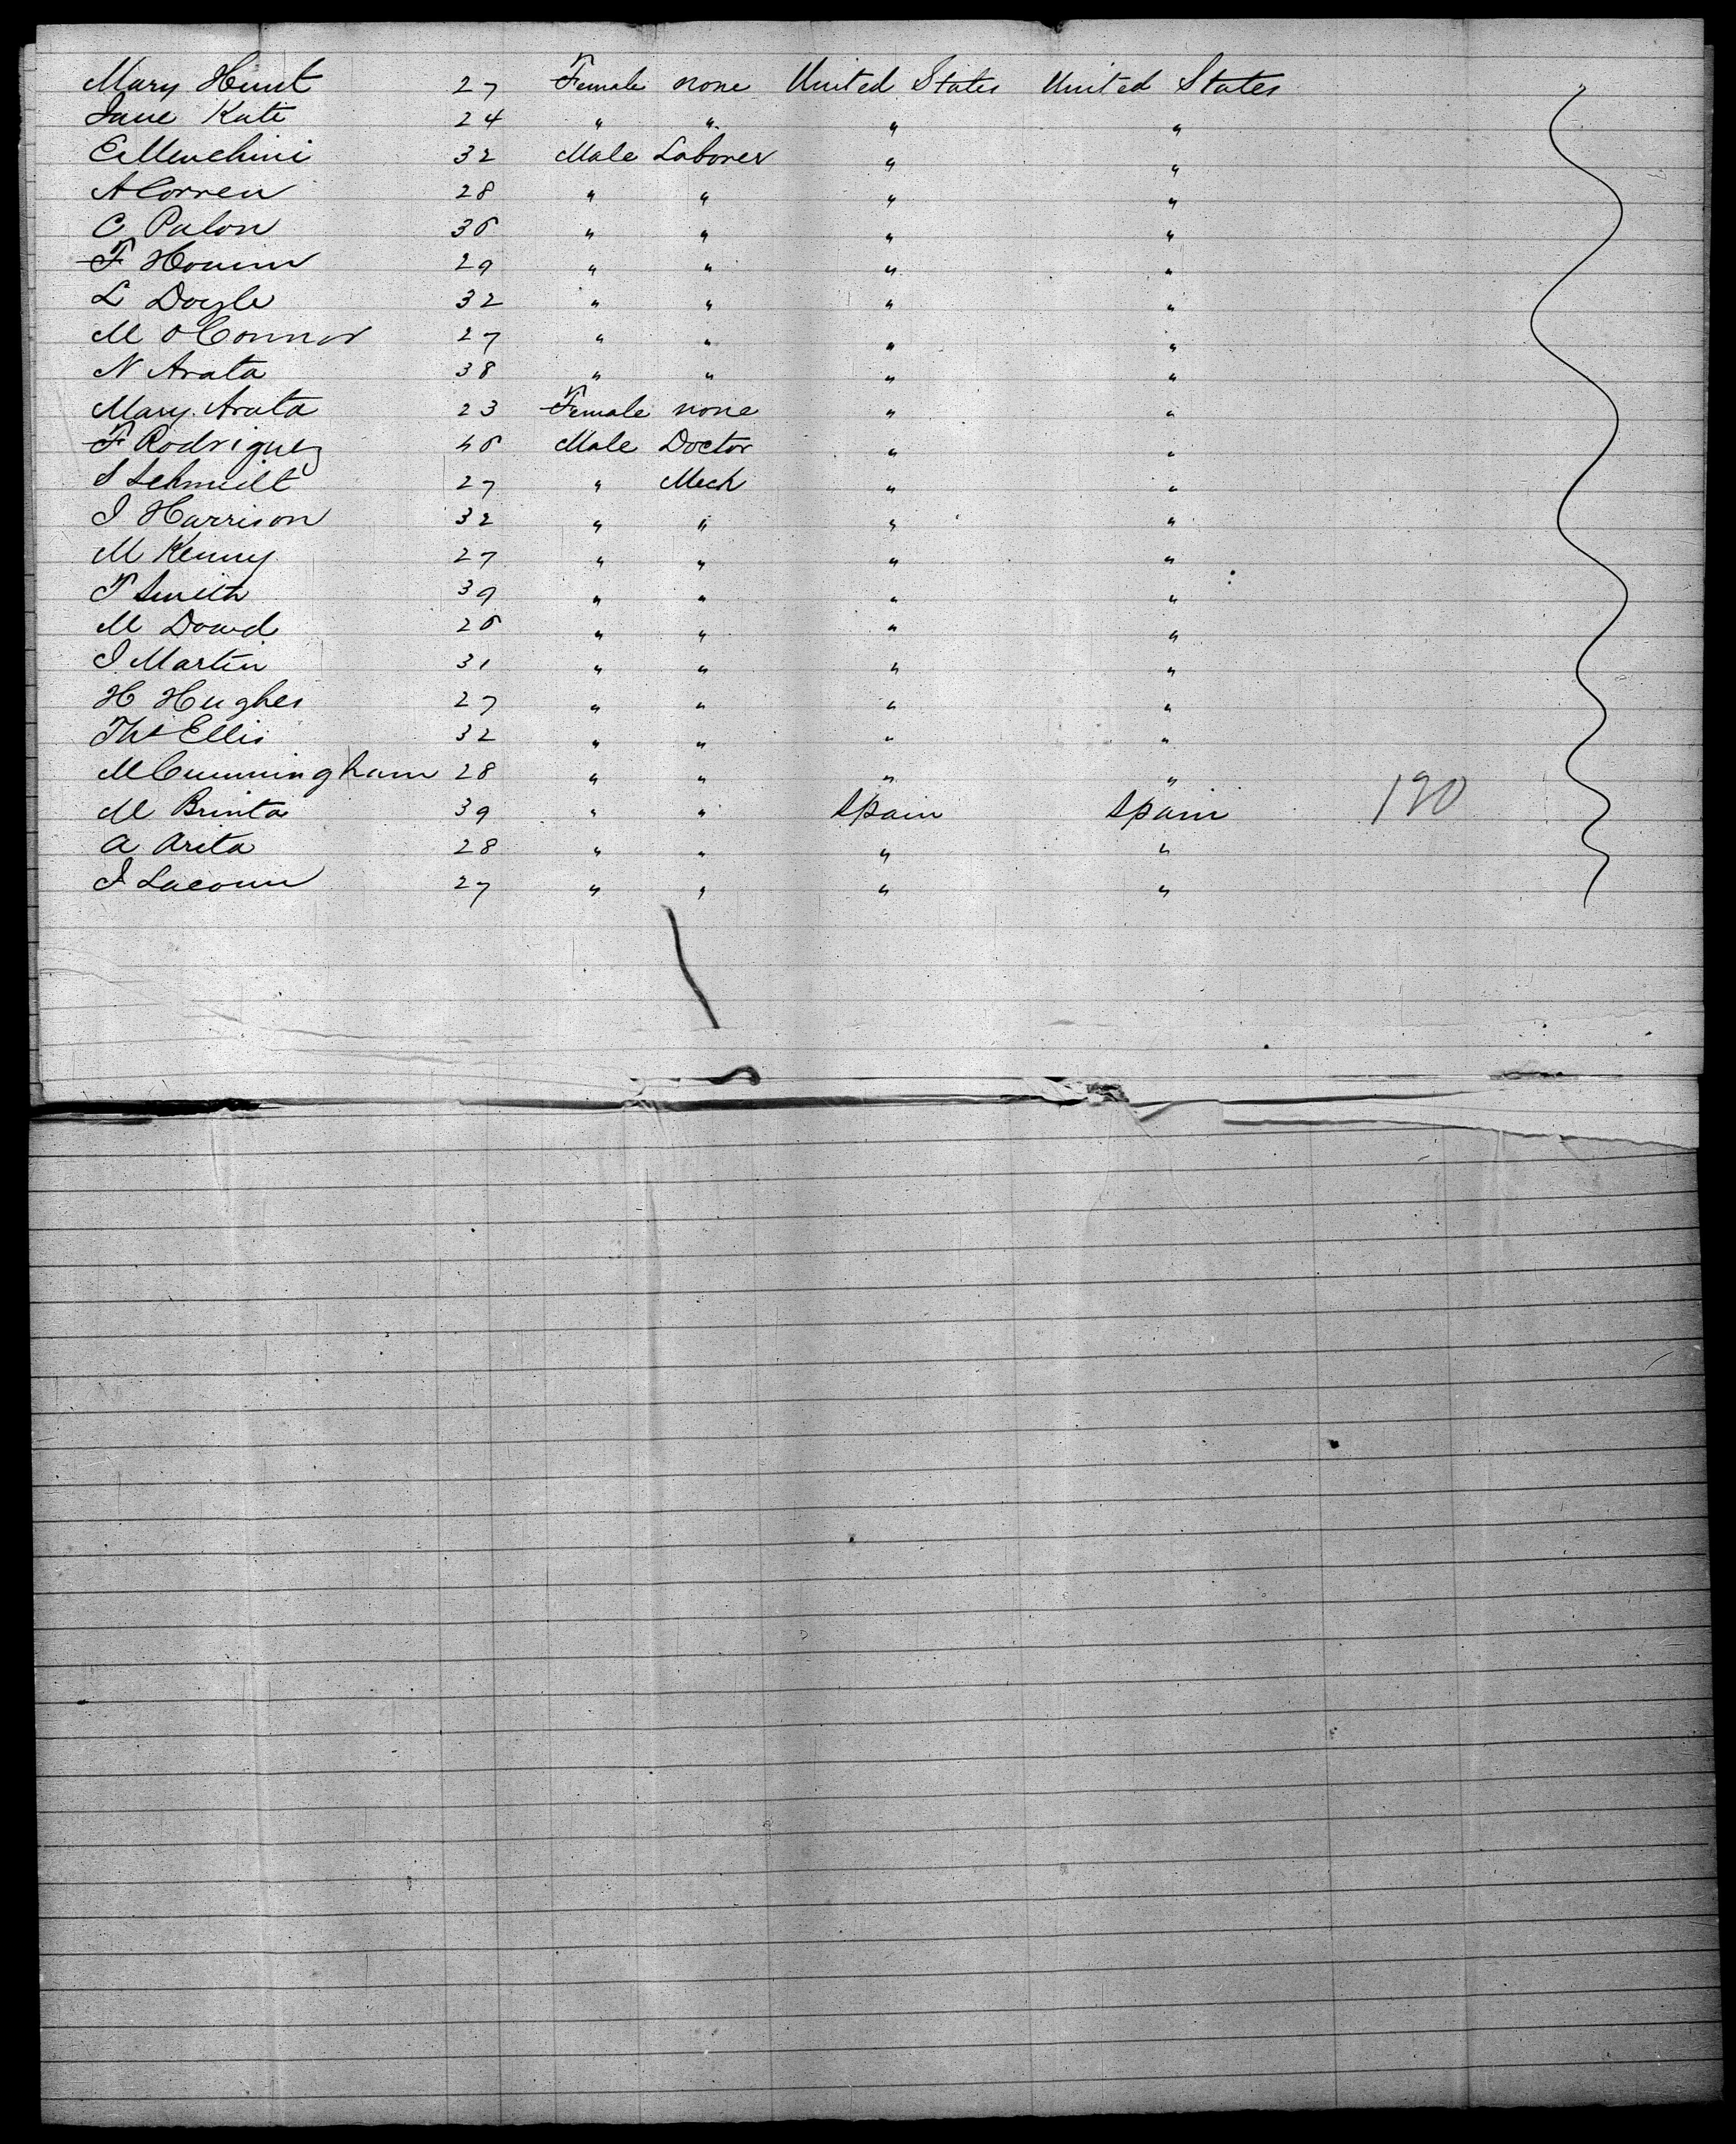 Mary Hunt 27 Female none United States United States
Jane Kate 24 " " " "
E Menchini 32 Male Laborer " "
A Correu 28 " " " "
C Palon 35 " " " "
F 29 " " " "
L Doyle 32 " " " "
M O'Connor 27 " " " "
N Arata 38 " " " "
Mary Arata 23 Female none " "
F Rodriguez 45 Male Doctor " "
S Schmidt 27 " Mech " "
J Harrison 32 " " " "
M Kenny 27 " " " "
T Smith 39 " " " "
M Dowd 25 " " " "
J Martin 31 " " " "
H Hughes 27 " " " "
Ths Ellis 32 " " " "
M Cunningham 28 " " " "
M Brinta 39 " " Spain Spain 190
A Arita 28 " " " "
J 27 " " " "